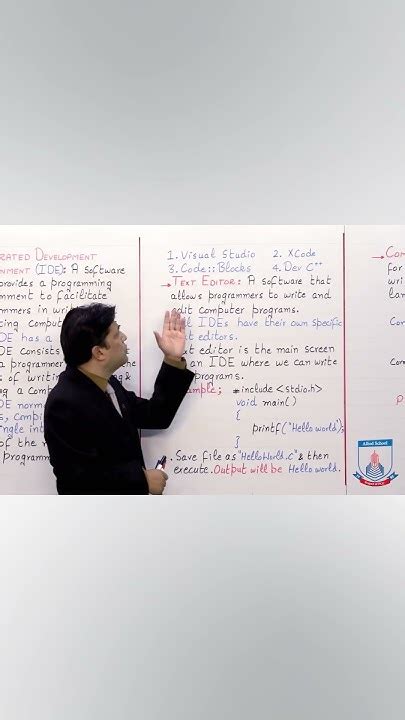 RATED DEVELOPMENT
NMENT (IDE): A software
provides a programming
ment to facilitate
mmers in writ
ing comput
DE has a
DE consists
a programmer
s of writing &
g a compute
DE norm
s, compi
ingle int
of the
programm
1. Visual Studio 2. XCode
3. Code::Blocks 4. Dev C++
→TEXT EDITOR: A software that
allows programmers to write and
edit computer programs.
ll IDEs have their own specific
xt editors.
xt editor is the main screen
an IDE where we can write
programs.
ample; #include <stdio.h>
void main()
{
printf("Hello world");
}
. Save file as "HelloWorld.c" & then
execute. Output will be Hello world.
→Com
for
wri
lan
Com
Com
P
Allied School